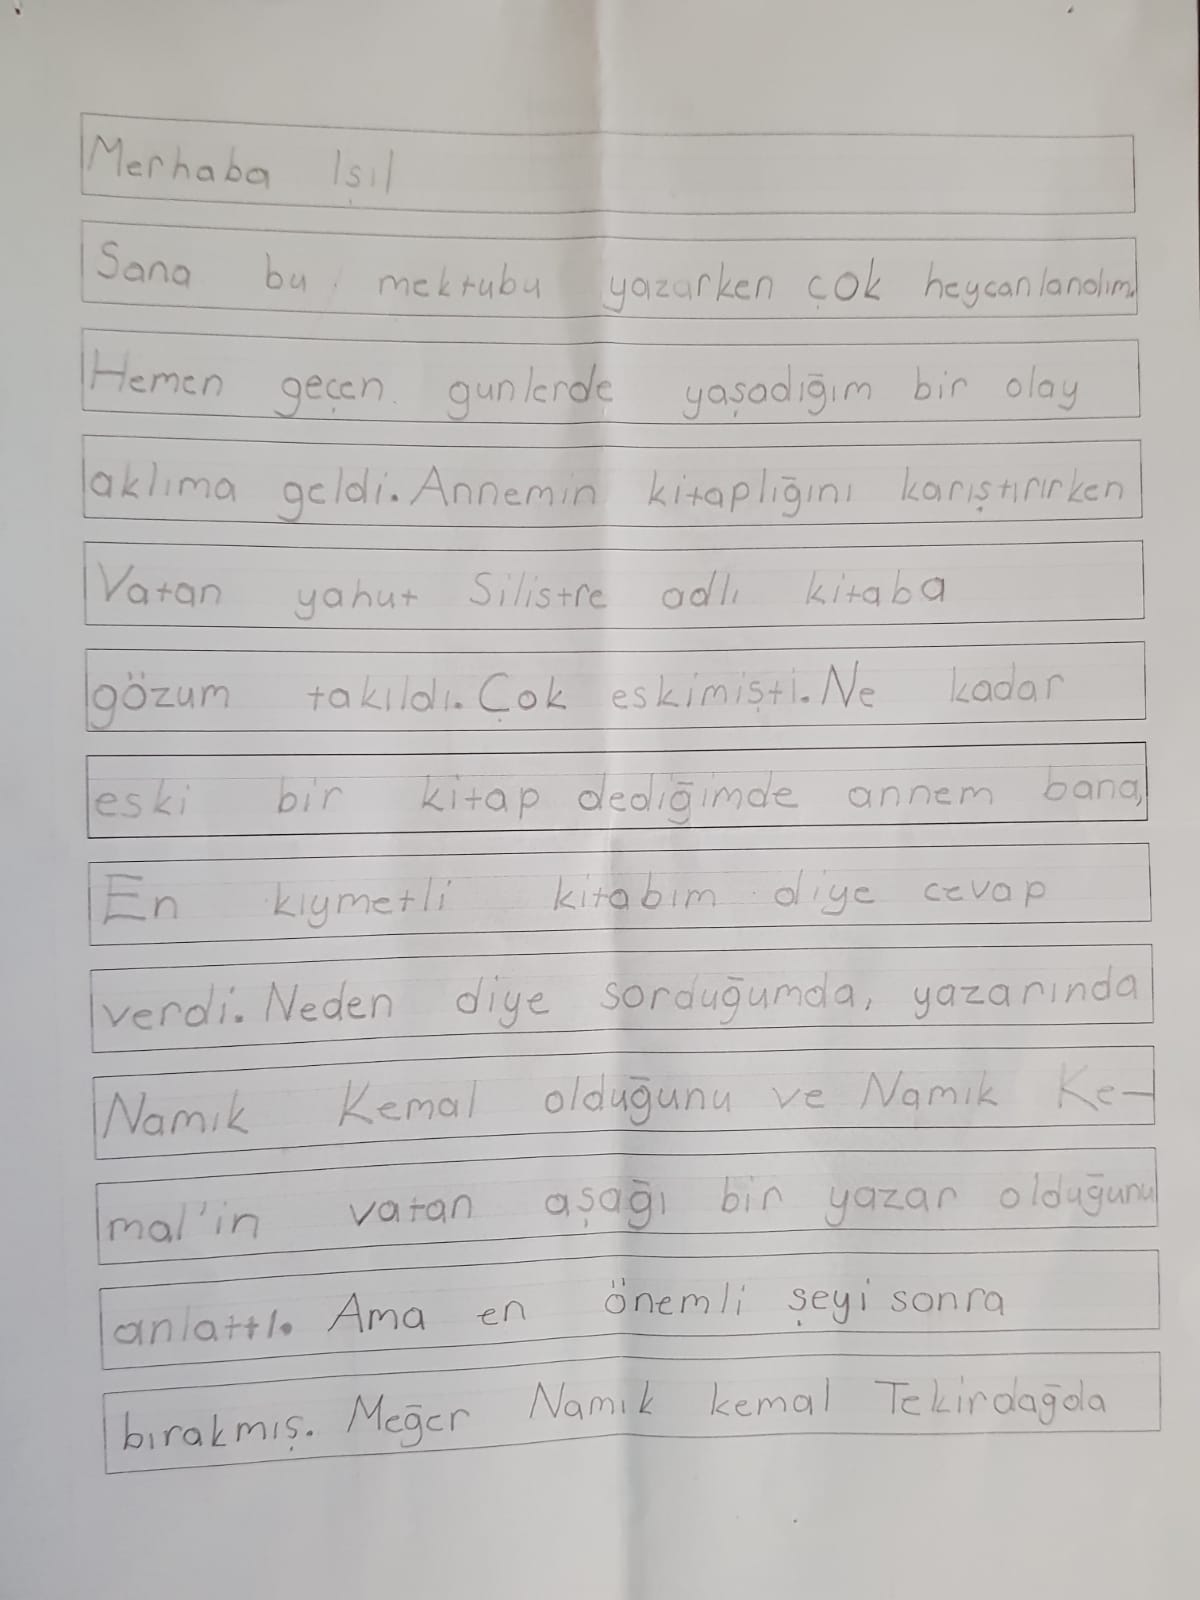 Merhaba Işıl
Sana bu mektubu yazarken çok heycanlandım.
Hemen geçen gunlerde yaşadığım bir olay
aklıma geldi. Annemin kitaplığını karıştırırken
Vatan yahut Silistre adlı kitaba
gözum takıldı. Çok eskimişti. Ne kadar
eski bir kitap dediğimde annem bana,
En kıymetli kitabım diye cevap
verdi. Neden diye sorduğumda, yazarında
Namık Kemal olduğunu ve Namık Ke-
mal'in vatan aşağı bir yazar olduğunu
anlattı. Ama en önemli şeyi sonra
bırakmış. Meğer Namık kemal Tekirdağda